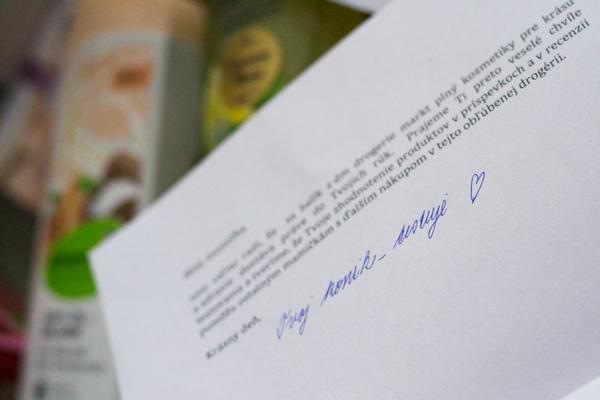 Milá mamička,
sme veľmi radi, že sa balík z dm drogerie markt plný kozmetiky pre krásu
a zdravie dostáva práve do Tvojich rúk. Prajeme Ti preto veselé chvíle
testovania a veríme, že Tvoje zhodnotenie produktov v príspevkoch a v recenzii
pomôžu ostatným mamičkám s ďalším nákupom v tejto obľúbenej drogérii.
Krásny deň,
Tvoj konik_testuje ♡